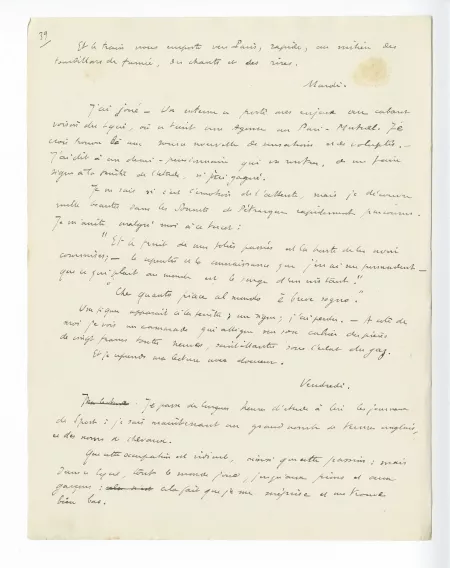 39
Et le train nous emporte vers Paris, rapide, au milieu des
tourbillons de fumée, des chants et des rires.
Mardi.
J'ai joué — Un interne a porté mes enjeux au cabaret
voisin du lycée, où se tient une Agence du Pari-Mutuel. J'ai
cru trouver là une source nouvelle de sensations et de voluptés. —
J'ai dit à un demi-pensionnaire qui va rentrer, de me faire
signe à la fenêtre de l'étude, si j'ai gagné.
Je ne sais si c'est l'émotion de l'attente, mais je découvre
quelle beauté dans les Sonnets de Pétrarque rapidement parcourus.
Je m'arrête, malgré moi à ce tercet :
"Et le fruit de mes folies passées est la honte de les avoir
commises ; — le repentir et la connaissance que j'en ai me persuadent —
que ce qui plaît au monde est le songe d'un instant."
"Che quanto piace al mondo è breve sogno".
Un signe apparaît à la fenêtre, un signe ; j'ai perdu. — A côté de
moi je vois un camarade qui allonge sur son cahier des pièces
de vingt francs toutes neuves, scintillantes sous l'éclat du gaz.
Et je reprends ma lecture avec douceur.
Vendredi.
Je passe de longues heures d'étude à lire les journaux
de Sport : je sais maintenant un grand nombre de termes anglais,
et des noms de chevaux.
Que cette occupation est ridicule, ainsi que cette passion : mais
dans ce lycée, tout le monde joue, jusqu'aux pions et aux
garçons : cela fait que je me méprise et me trouve
bien bas.